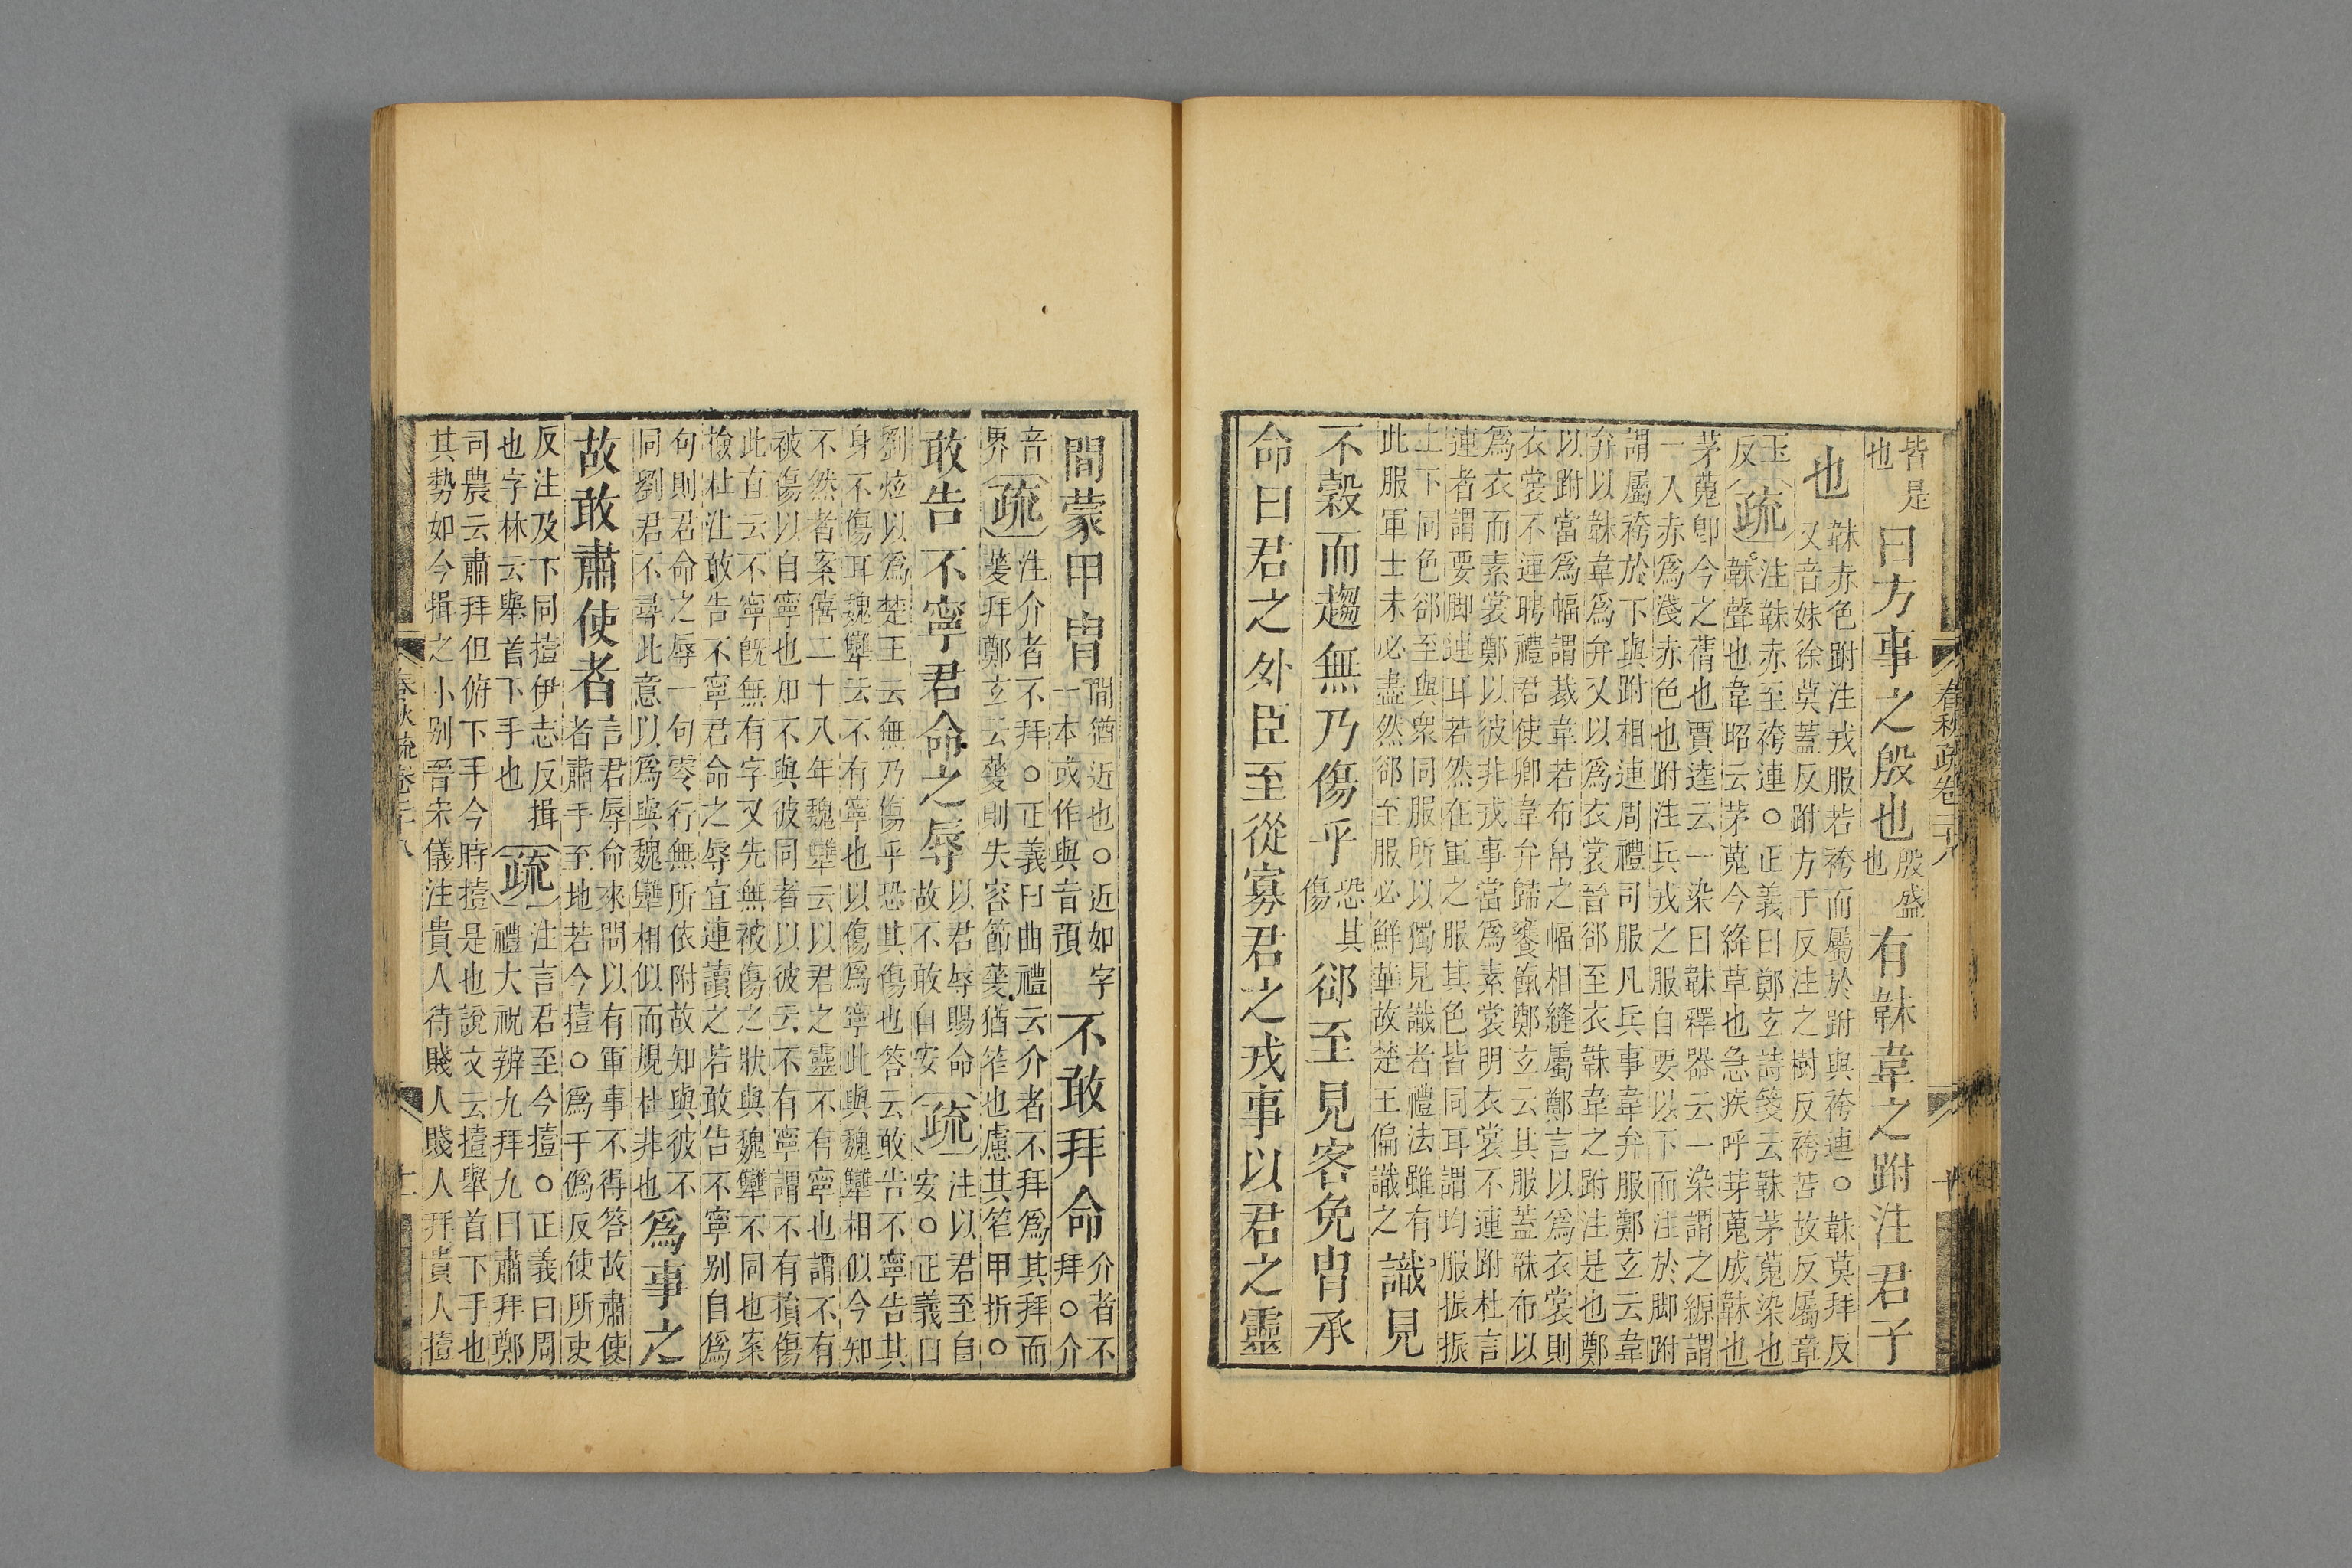 皆是也曰方事之殷也殷盛也有韎韋之跗注君子
也韎赤色跗注戎服若袴而屬於跗與袴連○韎莫拜反
又音妹徐莫蓋反跗方于反注之樹反袴苦故反屬章
玉反疏注韎赤至袴連○正義曰鄭玄詩箋云韎茅蒐染也
韎聲也韋昭云茅蒐今絳草也急疾呼茅蒐成韎也
茅蒐卽今之蒨也賈逵云一染曰韎釋器云一染謂之縓謂
一入赤爲淺赤色也跗注兵戎之服自要以下而注於脚跗
謂屬袴於下與跗相連周禮司服凡兵事韋弁服鄭玄云韋
弁以韎韋爲弁又以爲衣裳晉郤至衣韎韋之跗注是也鄭
以跗當爲幅謂裁韋若布帛之幅相縫屬鄭言以爲衣裳則
衣裳不連聘禮君使卿韋弁歸饔餼鄭玄云其服蓋韎布以
爲衣而素裳鄭以彼非戎事當爲素裳明衣裳不連跗杜言
連者謂要脚連耳若然在軍之服其色皆同耳謂均服振振
上下同色郤至與衆同服所以獨見識者禮法雖有
此服軍士未必盡然郤至服必鮮華故楚王偏識之識見
不穀而趨無乃傷乎恐其傷郤至見客免冑承
命曰君之外臣至從寡君之戎事以君之靈
春秋疏卷二十八
間蒙甲冑間猶近也○近如字一本或作與音預不敢拜命介者不拜○介
音界疏注介者不拜○正義曰曲禮云介者不拜爲其拜而
蓌拜鄭玄云蓌則失容節蓌猶笮也慮其笮甲折○
敢告不寧君命之辱以君辱賜命故不敢自安疏注以君至自安○正義曰
劉炫以爲楚王云無乃傷乎恐其傷也答云敢告不寧告其
身不傷耳魏犫云不有寧也以傷爲寧此與魏犫相似今知
不然者案僖二十八年魏犫云以君之靈不有寧也謂不有
被傷以自寧也知不與彼同者以彼云不有寧謂不有損傷
此直云不寧旣無有字又先無被傷之狀與魏犫不同也案
檢杜注敢告不寧君命之辱宜連讀之若敢告不寧别自爲
句則君命之辱一句零行無所依附故知與彼不
同劉君不尋此意以爲與魏犫相似而規杜非也爲事之
故敢肅使者言君辱命來問以有軍事不得答故肅使
者肅手至地若今撎○爲于僞反使所吏
反注及下同撎伊志反揖
也字林云舉首下手也疏注言君至今撎○正義曰周
禮大祝辨九拜九曰肅拜鄭
司農云肅拜但俯下手今時撎是也說文云撎舉首下手也
其勢如今揖之小别晉宋儀注貴人待賤人賤人拜貴人撎
春秋疏卷二十八